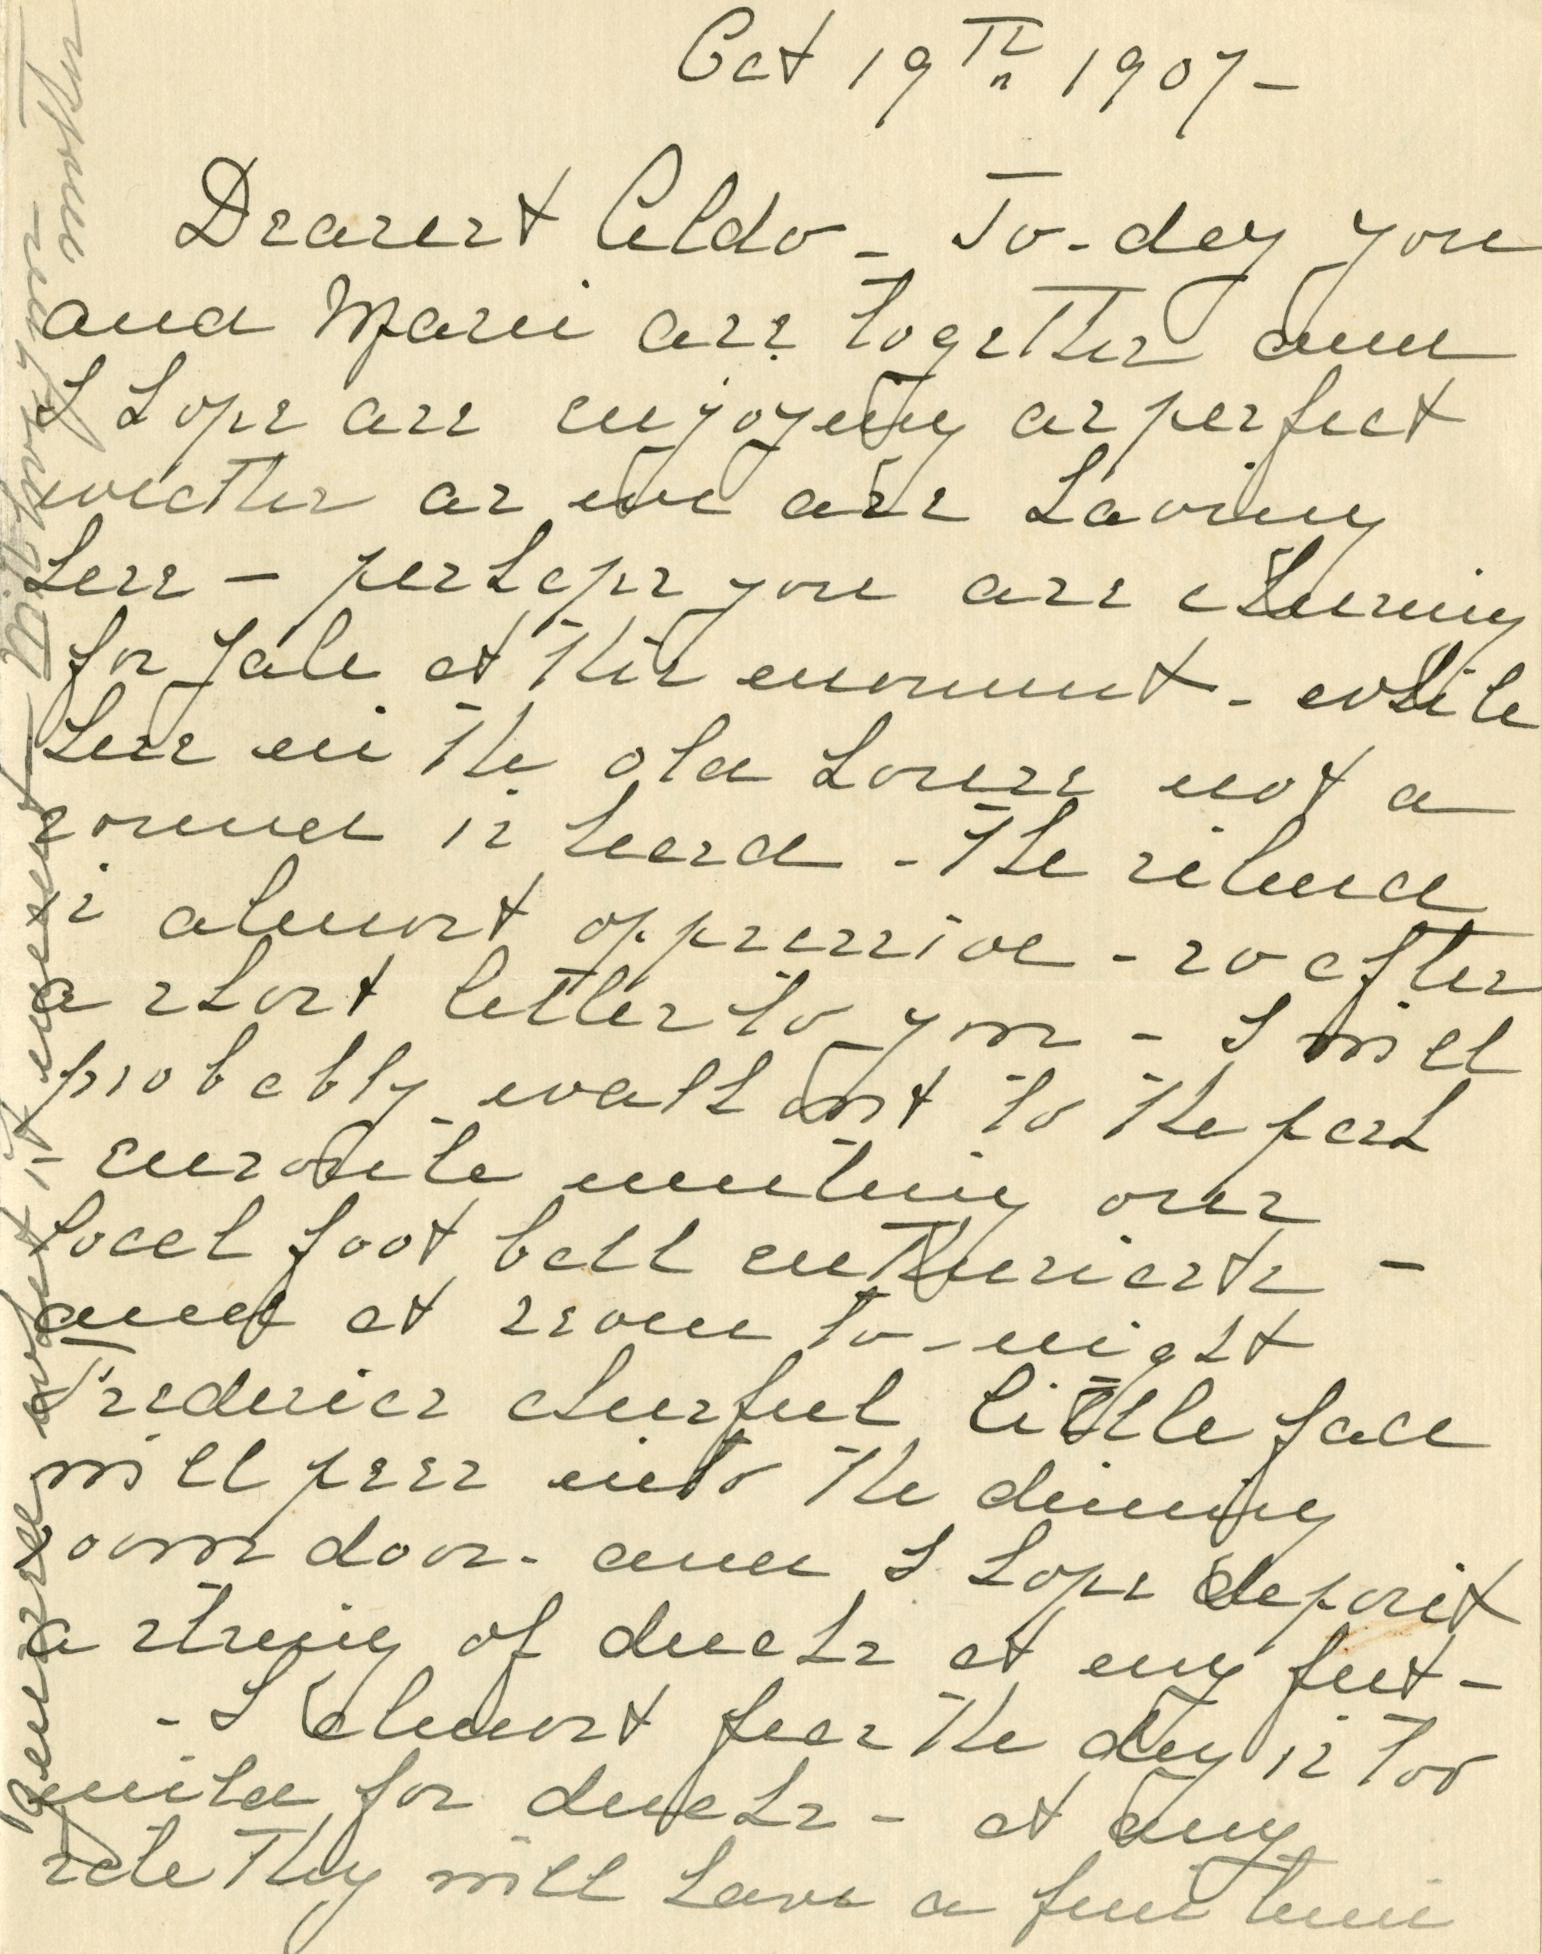 Oct 19th 1907 -
Dearest Aldo - To-day you
and Marie are together and
I hope are enjoying as perfect
weather as we are having
here - perhaps you are cheering
for Yale at this moment - while
here in the old house not a
sound is heard - the silence
is almost oppressive - so after
a short letter to you - I will
probably walk out to the park
- enroute meeting our
local foot ball enthusiasts -
and at seven to-night
Frederics cheerful little face
will peer into the dining
room door - and I hope deposit
a string of ducks at my feet -
- I almost fear the day is too
mild for ducks - at any
rate they will have a fine time